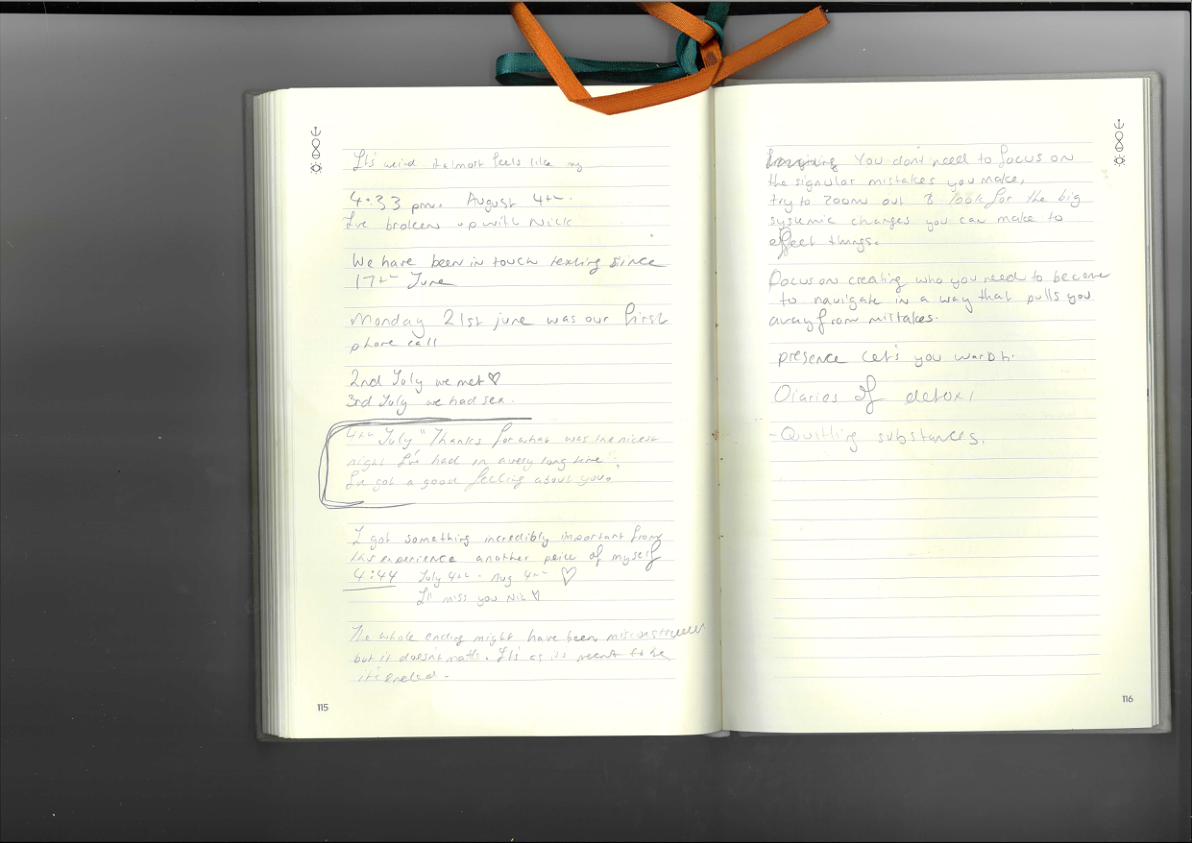 It's weird it almost feels like my
4:33 pm. August 4th.
I've broken up with Nick
We have been in touch texting since
17th June
Monday 21st june was our first
phone call
2nd July we met ♡
3rd July we had sex.
4th July "Thanks for what was the nicest
night I've had in a very long time".
I've got a good feeling about you.
I got something incredibly important from
this experience another peice of myself
4:44 July 4th - Aug 4th ♡
I'll miss you Nick ♡
The whole ending might have been misconstrued
but it doesn't matter. It's as its meant to be
it's ended.
115
You dont need to focus on
the signular mistakes you make,
try to zoom out & look for the big
systemic changes you can make to
effect things.
Focus on creating who you need to become
to navigate in a way that pulls you
away from mistakes.
presence let's you
Diaries of detox,
- Quitting substances.
116